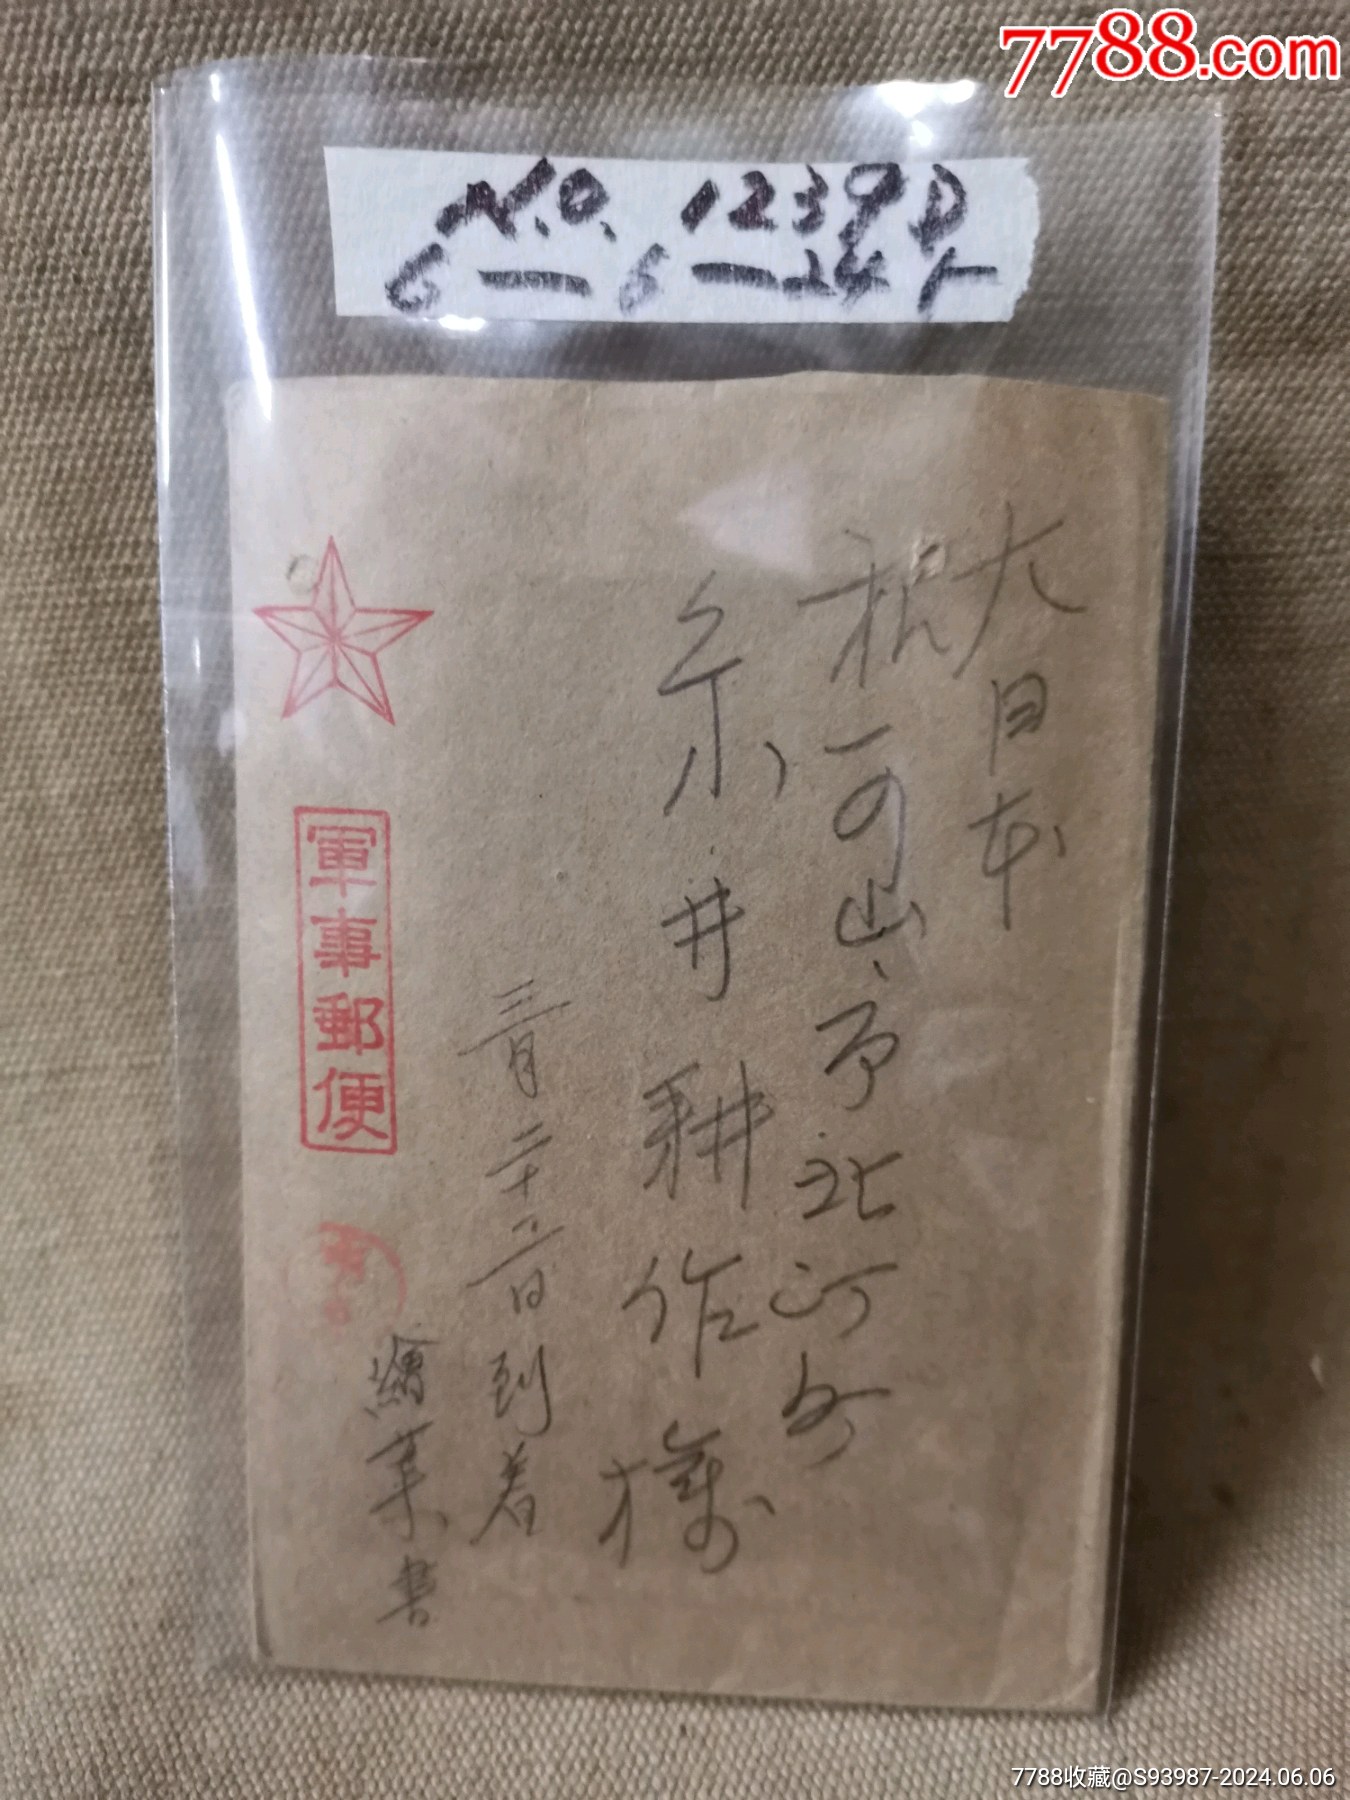 7788.com
NO. 1239D
6-6-24
大日本
和哥山市北河岸
糸井耕作様
三月二十二日到着
繪葉書
軍事郵便
7788收藏@S93987-2024.06.06